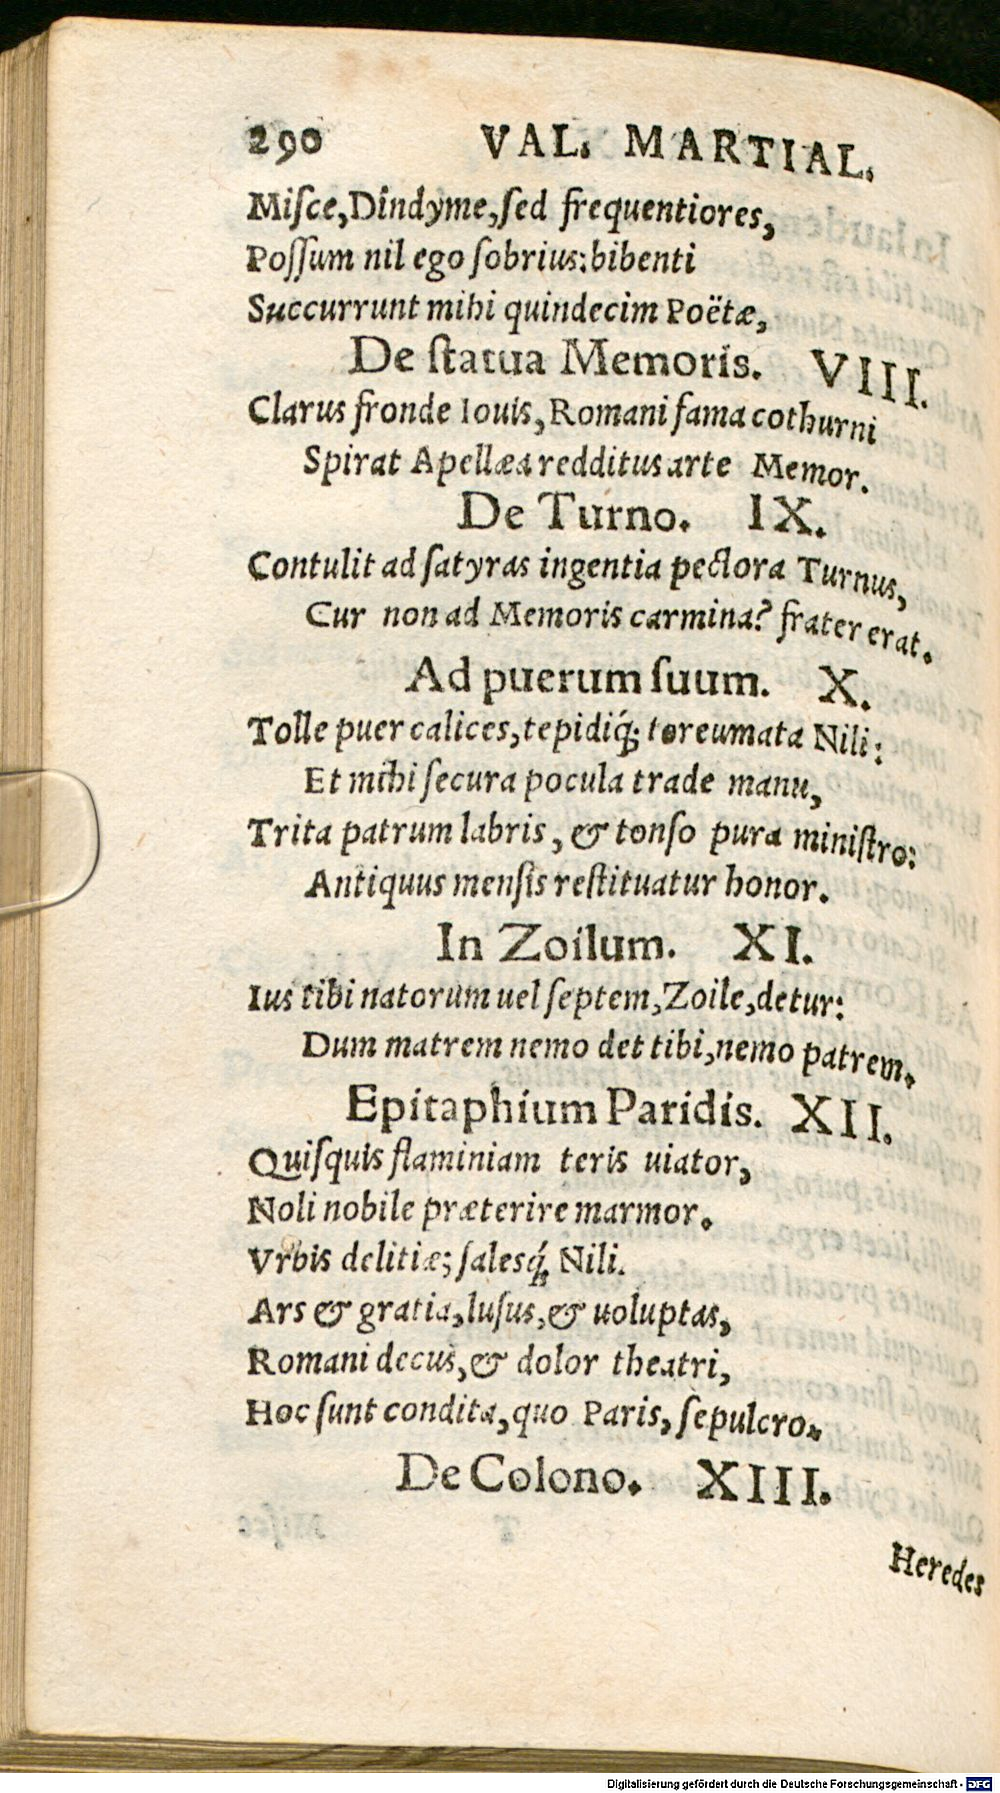 290 VAL. MARTIAL.
Miſce, Dindyme, ſed frequentiores,
Poſſum nil ego ſobrius: bibenti
Succurrunt mihi quindecim Poëtæ,
De ſtatua Memoris. VIII.
Clarus fronde Iouis, Romani fama cothurni
Spirat Apellæa redditus arte Memor.
De Turno. IX.
Contulit ad ſatyras ingentia pectora Turnus,
Cur non ad Memoris carmina? frater erat.
Ad puerum ſuum. X.
Tolle puer calices, tepidiq́; toreumata Nili:
Et mihi ſecura pocula trade manu,
Trita patrum labris, & tonſo pura miniſtro:
Antiquus menſis reſtituatur honor.
In Zoilum. XI.
Ius tibi natorum uel ſeptem, Zoile, detur:
Dum matrem nemo det tibi, nemo patrem.
Epitaphium Paridis. XII.
Quiſquis flaminiam teris uiator,
Noli nobile præterire marmor.
Vrbis delitiæ; ſalesq́; Nili.
Ars & gratia, luſus, & uoluptas,
Romani decus, & dolor theatri,
Hoc ſunt condita, quo Paris, ſepulcro.
De Colono. XIII.
Heredes
Digitalisierung gefördert durch die Deutsche Forschungsgemeinschaft - DFG